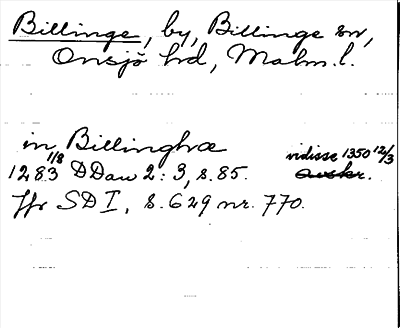 Billinge, by, Billinge sn,
Onsjö hd, Malm. l.
in Billinghæ
1283 1/8 DDan 2:3, s. 85. vidisse 1350 12/3
Jfr SD I, s. 629 nr. 770.